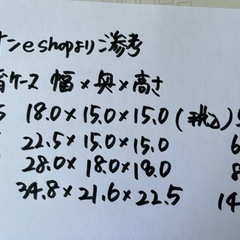 ンeshopよりご参考
育ケース 幅×奥×高さ
18.0×15.0×15.0(税込)
22.5×15.0×15.0 6
28.0×18.0×18.0 8
34.8×21.6×22.5 14